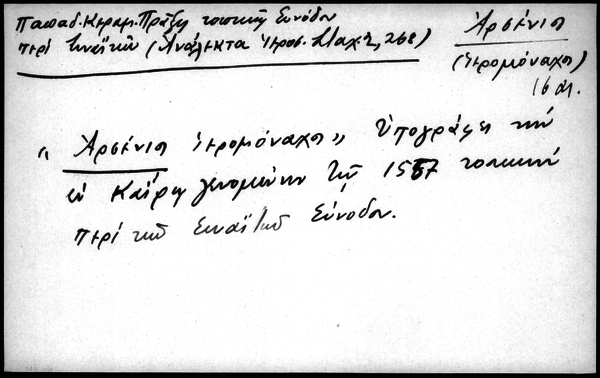 Παπαδ. Κεραμ. Πράξις τοπικῆς Συνόδου
περὶ Σιναϊτῶν (Ἀνάλεκτα Ἱεροσ. Σταχ. 268)
Ἀρσένιος
(Ἱερομόναχος)
16 αἰ.
"Ἀρσένιος Ἱερομόναχος" Ὑπογράφει τὴν
ἐν Καΐρῳ γενομένην τῷ 1557 τοπικὴν
περὶ τοῦ Σιναΐου Σύνοδον.